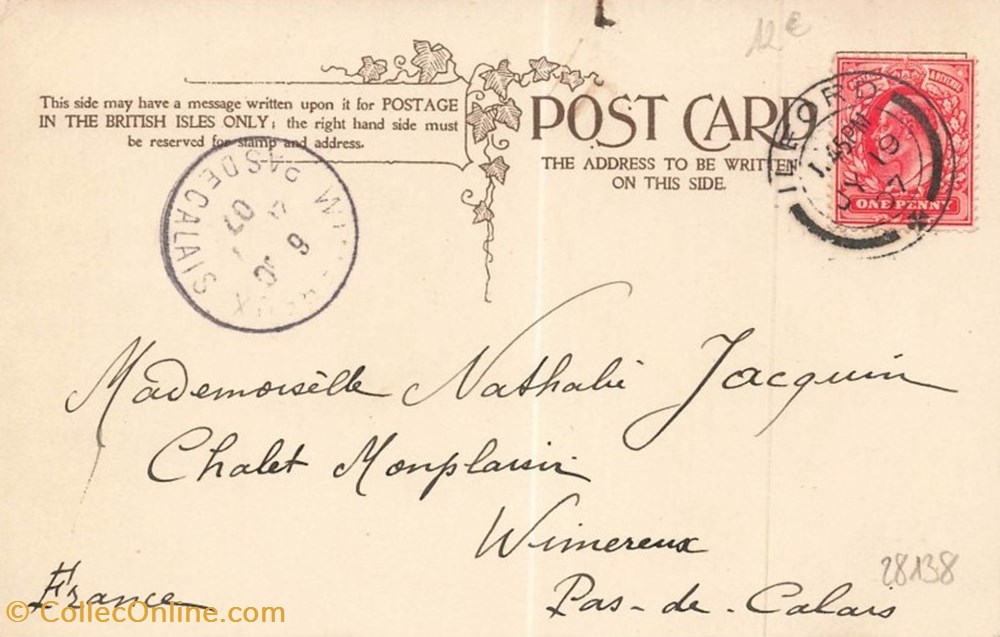 12 €
This side may have a message written upon it for POSTAGE
IN THE BRITISH ISLES ONLY; the right hand side must
be reserved for stamp and address.
POST CARD
THE ADDRESS TO BE WRITTEN
ON THIS SIDE.
ILFORD
1.45PM
JY 19
07
ONE PENNY
PAS DE CALAIS
07
Mademoisèlle Nathalie Jacquin
Chalet Monplaisir
Wimereux
France
Pas-de-Calais
28138
© CollecOnline.com